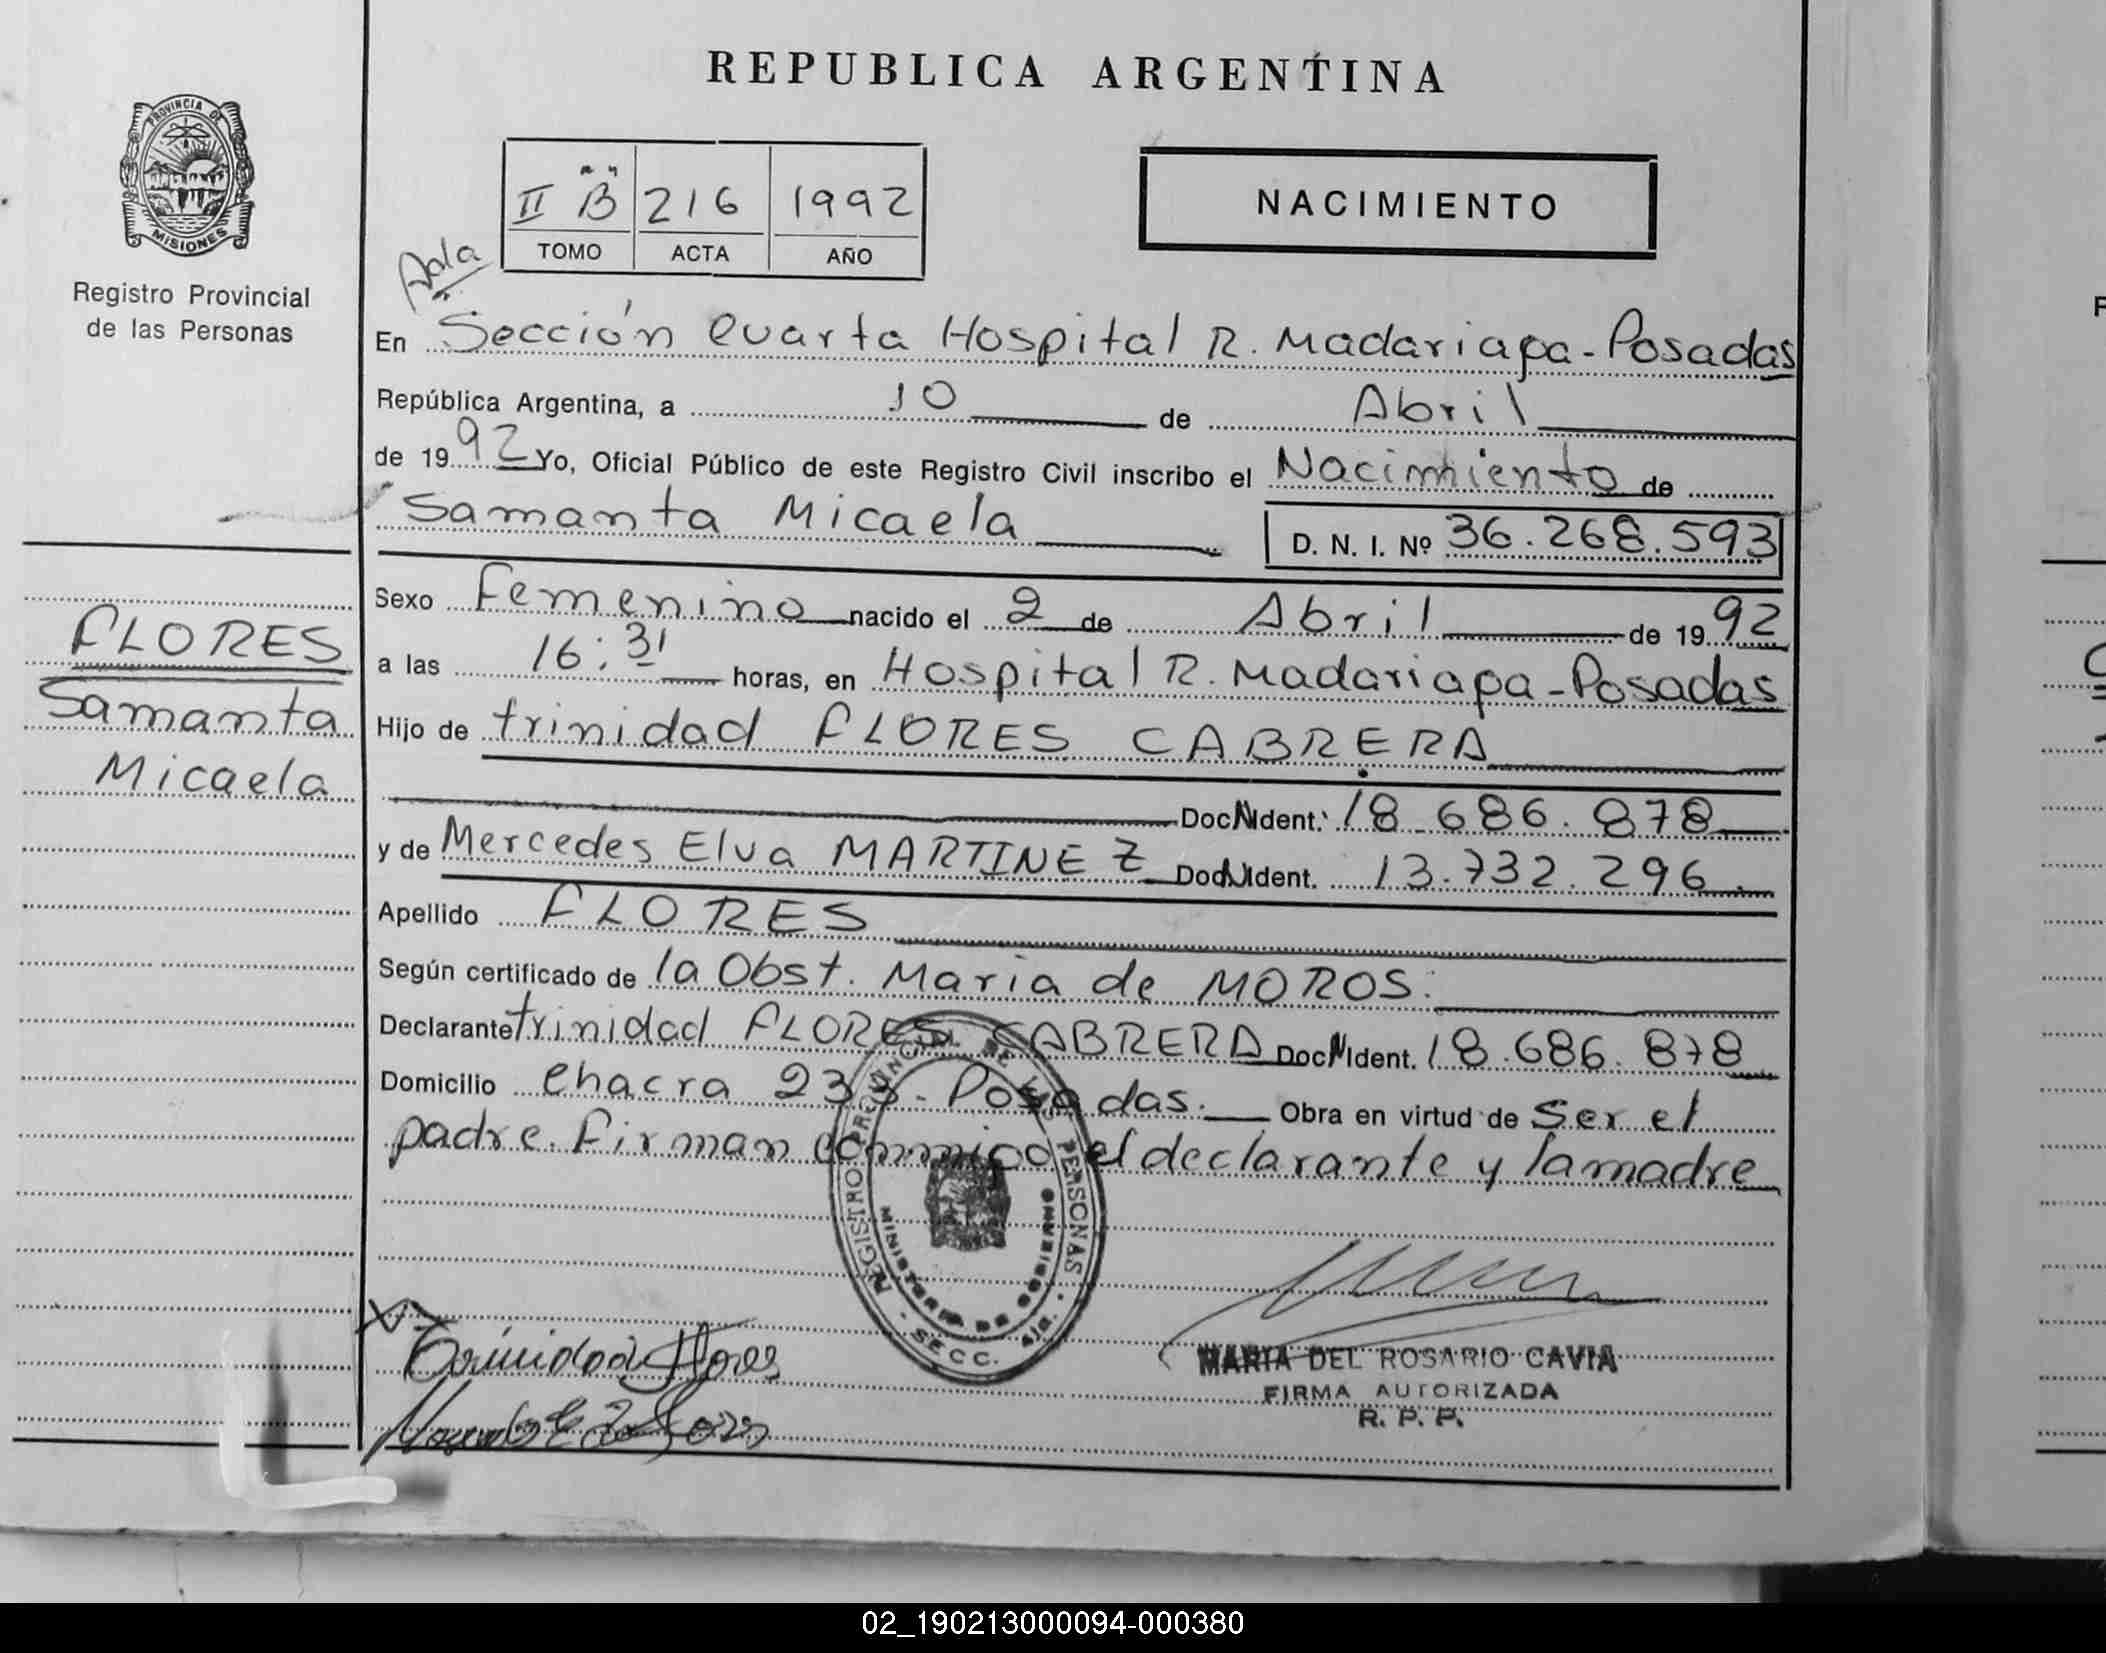 REPUBLICA ARGENTINA
PROVINCIA DE MISIONES
Registro Provincial
de las Personas
II "B" 216 1992
TOMO ACTA AÑO
NACIMIENTO
En Sección Cuarta Hospital R. Madariaga - Posadas
República Argentina, a 10 de Abril
de 1992 Yo, Oficial Público de este Registro Civil inscribo el Nacimiento de
Samanta Micaela D. N. I. Nº 36.268.593
Sexo Femenino nacido el 2 de Abril de 1992
a las 16:31 horas, en Hospital R. Madariaga - Posadas
Hijo de trinidad FLORES CABRERA
Doc. N. Ident. 18.686.878
y de Mercedes Elva MARTINEZ Doc. N. Ident. 13.732.296.
Apellido FLORES
Según certificado de la Obst. Maria de MOROS.
Declarante trinidad FLORES CABRERA Doc. N. Ident. 18.686.878
Domicilio Chacra 233 - Posadas. Obra en virtud de Ser el
padre. Firman conmigo el declarante y la madre
FLORES
Samanta
Micaela
REGISTRO PROVINCIAL DE LAS PERSONAS
MINISTERIO DE GOBIERNO
SECC. 4ta.
Trinidad Flores
MARIA DEL ROSARIO CAVIA
FIRMA AUTORIZADA
R. P. P.
02_190213000094-000380